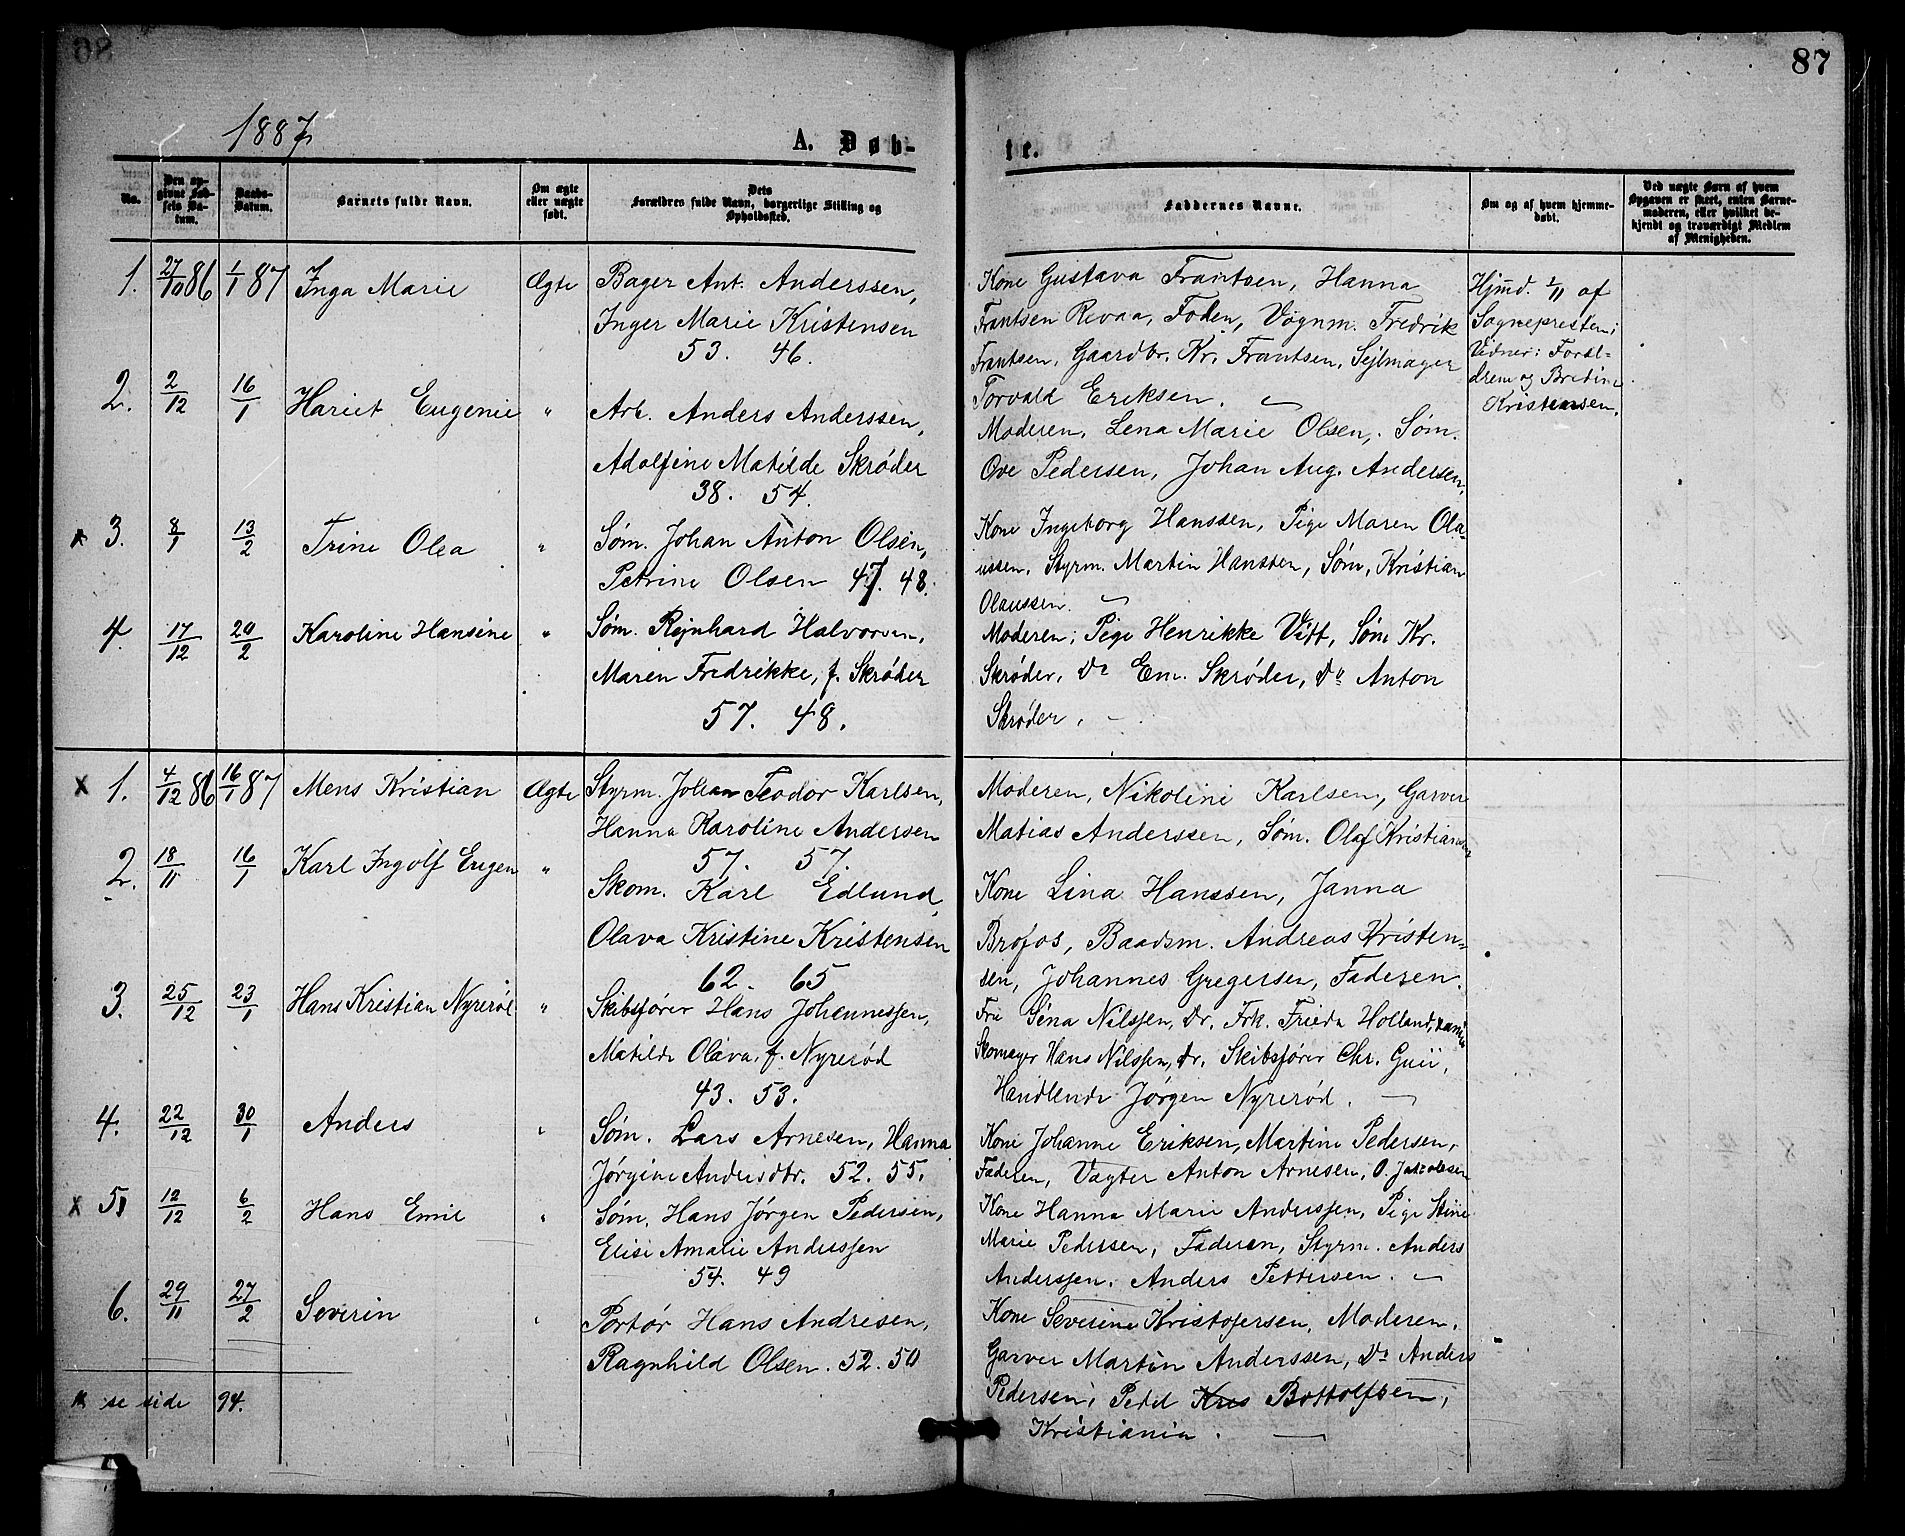 87
1887
A. Døb-
te.
No.
Den opgivne Fødsels Datum.
Daabs-Datum.
Barnets fulde Navn.
Om ægte eller uægte født.
Dets Forældres fulde Navn, borgerlige Stilling og Opholdssted.
Faddernes Navne.
Om og af hvem hjemmedøbt.
Ved uægte Børn af hvem Opgaven er skeet, enten Barnemoderen, eller hvilket bekjendt og troværdigt Medlem af Menigheden.
1. 27/10 86 1/1 87 Inga Marie Ægte Bager Ant. Anderssen,
Inger Marie Kristensen
53. 46.
Kone Gustava Frantsen, Hanna
Frantsen Revaa, Foden, Vognm. Fredrik
Frantsen, Gaardbr. Kr. Frantsen, Sejlmager
Torvald Eriksen.
Hjmd. 1/11 af
Sognepresten;
Vidner: Foræl-
drem og Bredine
Kristensen.
2. 2/12 16/1 Hariet Eugenie " Arb. Anders Anderssen,
Adolfine Matilde Skrøder
38. 54.
Moderen, Lena Marie Olsen, Søm.
Ove Pedersen, Johan Aug. Andersen,
x 3. 8/1 13/2 Trine Olea " Søm. Johan Anton Olsen,
Petrine Olsen 47. 48.
Kone Ingeborg Hanssen, Pige Maren Ola-
ussen, Styrm. Martin Hansten, Søm, Kristian
Olaussen. —
4. 17/12 20/2 Karoline Hansine " Søm. Rejnhard Halvorsen,
Maren Fredrikke, f. Skrøder
57. 48.
Moderen; Pige Henrikke Vitt, Søm Kr.
Skrøder, Do Em. Skrøder, Do Anton
Skrøder. —
x 1. 4/12 86 16/1 87 Mens Kristian Ægte Styrm. Johan Teodor Karlsen,
Hanna Karoline Andersen
57. 57.
Moderen, Nikoline Karlsen, Garver
Matias Anderssen, Søm. Olaf Kristiansen
2. 18/11 16/1 Karl Ingolf Eugen " Skom. Karl Edlund,
Olava Kristine Kristensen
62. 65
Kone Lina Hanssen, Janna
Brofos, Baadsm. Andreas Kristen-
sen, Johannes Gregersen, Faderen.
3. 25/12 23/1 Hans Kristian Nyrerød " Skibsfører Hans Johannessen,
Matilde Olava f. Nyrerød
43. 53.
Fru Sina Nilssen, Dr. Frk. Frieda Holland,
Skomager Hans Nilssen, Dr. Skibsfører Chr. Guii,
Handlende Jørgen Nyrerød. —
4. 22/12 30/1 Anders " Søm. Lars Arnesen, Hanna
Jørgine Andersdtr. 52. 55.
Kone Johanne Eriksen, Martine Pedersen,
Faderen, Vagter Anton Arnesen, O. Jakobsen
x 5. 12/12 6/2 Hans Emil " Søm. Hans Jørgen Pedersen,
Elise Amalie Anderssen
54. 49
Kone Hanna Marie Anderssen, Pige Stine
Marie Pedersen, Faderen, Styrm. Anders
Anderssen. Anders Pettersen. —
6. 29/11 27/2 Severin " Portør Hans Andresen,
Ragnhild Olsen. 52. 50
Kone Severine Kristofersen, Moderen,
Garver Martin Anderssen, Do Anders
Pedersen, Peder Kris Bottolfsen,
Kristiania. —
x se side 94.